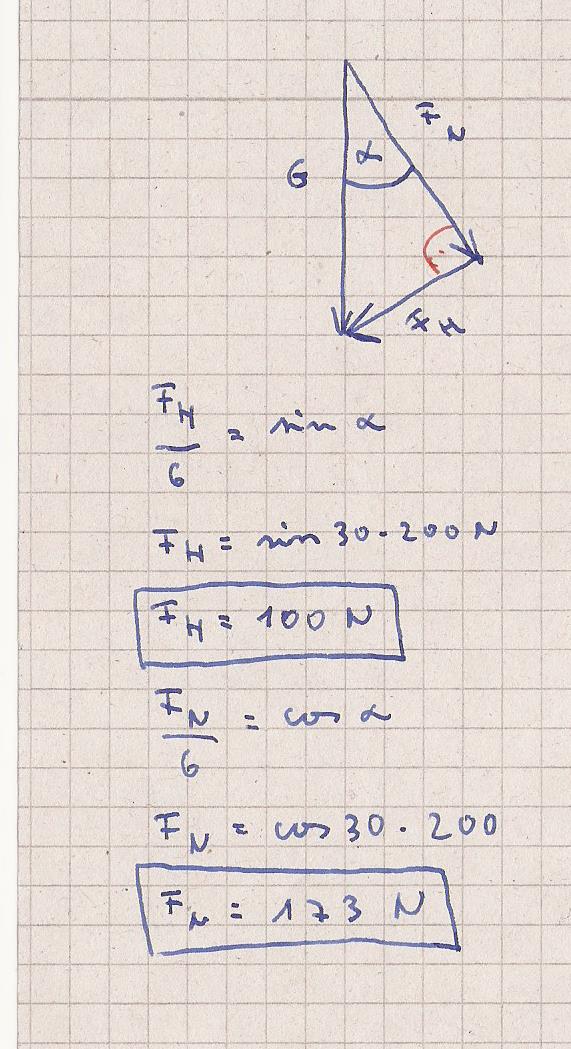 F_N
α
G
F_H
F_H / G = sin α
F_H = sin 30 · 200 N
F_H = 100 N
F_N / G = cos α
F_N = cos 30 · 200
F_N = 173 N